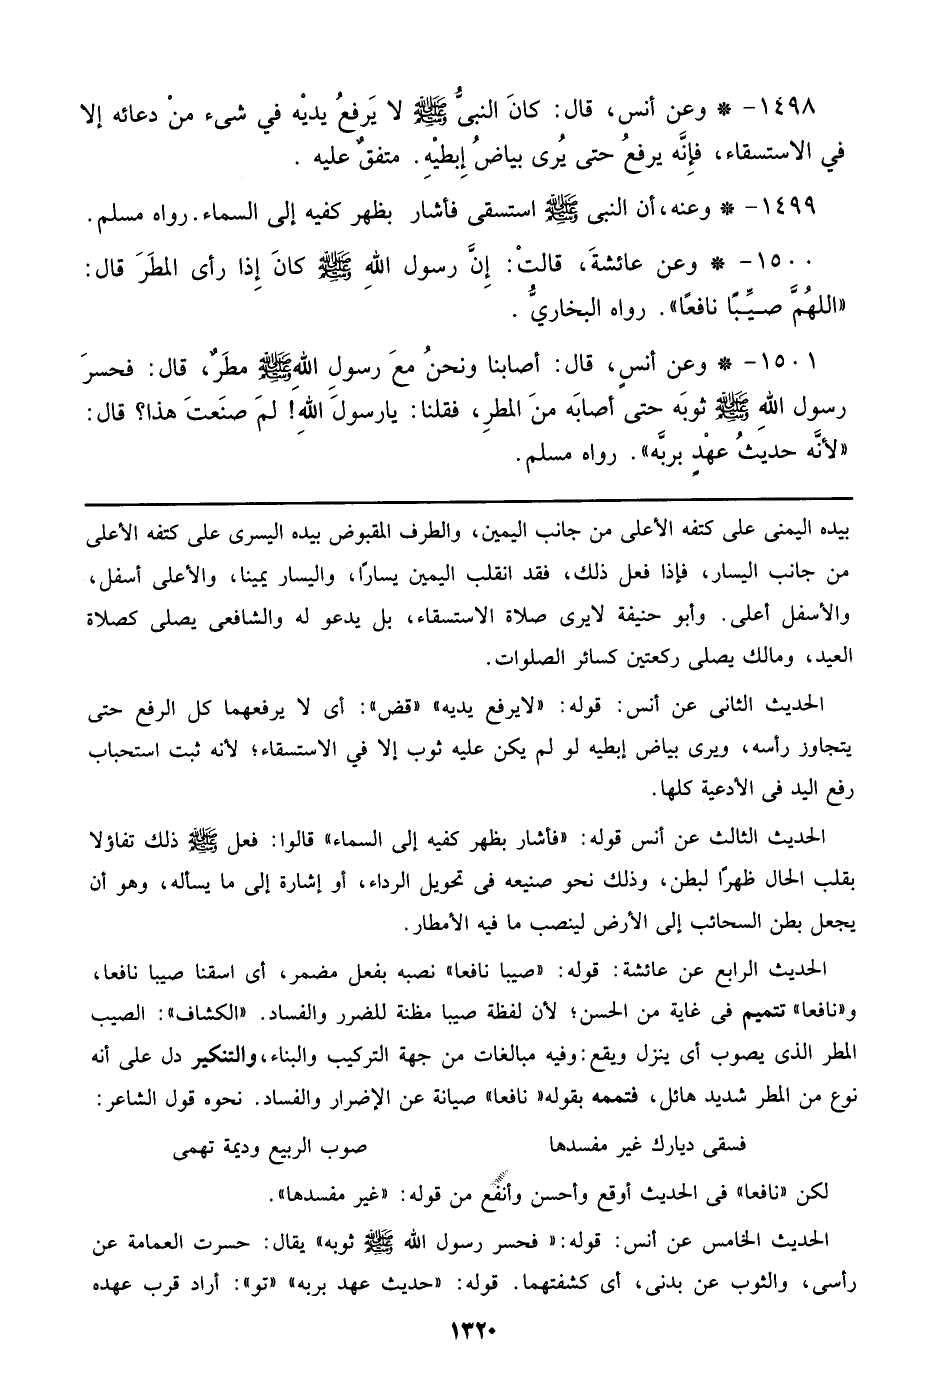 ١٤٩٨- * وعن أنس، قال: كانَ النبىُّ ﷺ لا يَرفعُ يديْه في شىء منْ دعائه إلا
في الاستسقاء، فإِنَّه يرفعُ حتى يُرى بياضُ إبطيْهِ. متفقٌ عليه .
١٤٩٩- * وعنه، أن النبى ﷺ استسقى فأشار بظهر كفيه إلى السماء. رواه مسلم.
١٥٠٠- * وعن عائشةَ، قالتْ: إِنَّ رسول اللهِ ﷺ كانَ إِذا رأى المطَرَ قال:
«اللهُمَّ صيِّبًا نافعًا». رواه البخاريُّ .
١٥٠١- * وعن أنسٍ، قال: أصابنا ونحنُ معَ رسولِ اللهِ ﷺ مطَرٌ، قال: فحسرَ
رسول اللهِ ﷺ ثوبَه حتى أصابَه منَ المطرِ، فقلنا: يارسولَ اللهِ! لمَ صنَعتَ هذا؟ قال:
«لأنَّه حديثُ عهْدٍ بربَّه». رواه مسلم.
بيده اليمنى على كتفه الأعلى من جانب اليمين، والطرف المقبوض بيده اليسرى على كتفه الأعلى
من جانب اليسار، فإذا فعل ذلك، فقد انقلب اليمين يسارًا، واليسار يمينا، والأعلى أسفل،
والأسفل أعلى. وأبو حنيفة لايرى صلاة الاستسقاء، بل يدعو له والشافعى يصلى كصلاة
العيد، ومالك يصلى ركعتين كسائر الصلوات.
الحديث الثانى عن أنس: قوله: «لايرفع يديه» «قض»: أى لا يرفعهما كل الرفع حتى
يتجاوز رأسه، ويرى بياض إبطيه لو لم يكن عليه ثوب إلا في الاستسقاء؛ لأنه ثبت استحباب
رفع اليد فى الأدعية كلها.
الحديث الثالث عن أنس قوله: «فأشار بظهر كفيه إلى السماء» قالوا: فعل ﷺ ذلك تفاؤلا
بقلب الحال ظهرًا لبطن، وذلك نحو صنيعه فى تحويل الرداء، أو إشارة إلى ما يسأله، وهو أن
يجعل بطن السحائب إلى الأرض لينصب ما فيه الأمطار.
الحديث الرابع عن عائشة: قوله: «صيبا نافعا» نصبه بفعل مضمر، أى اسقنا صيبا نافعا،
و«نافعا» تتميم فى غاية من الحسن؛ لأن لفظة صيبا مظنة للضرر والفساد. «الكشاف»: الصيب
المطر الذى يصوب أى ينزل ويقع: وفيه مبالغات من جهة التركيب والبناء، والتنكير دل على أنه
نوع من المطر شديد هائل، فتممه بقوله« نافعا» صيانة عن الإضرار والفساد. نحوه قول الشاعر:
فسقى ديارك غير مفسدها صوب الربيع وديمة تهمى
لكن «نافعا» فى الحديث أوقع وأحسن وأنفع من قوله: «غير مفسدها».
الحديث الخامس عن أنس: قوله:« فحسر رسول الله ﷺ ثوبه» يقال: حسرت العمامة عن
رأسى، والثوب عن بدنى، أى كشفتهما. قوله: «حديث عهد بربه» «تو»: أراد قرب عهده
١٣٢٠